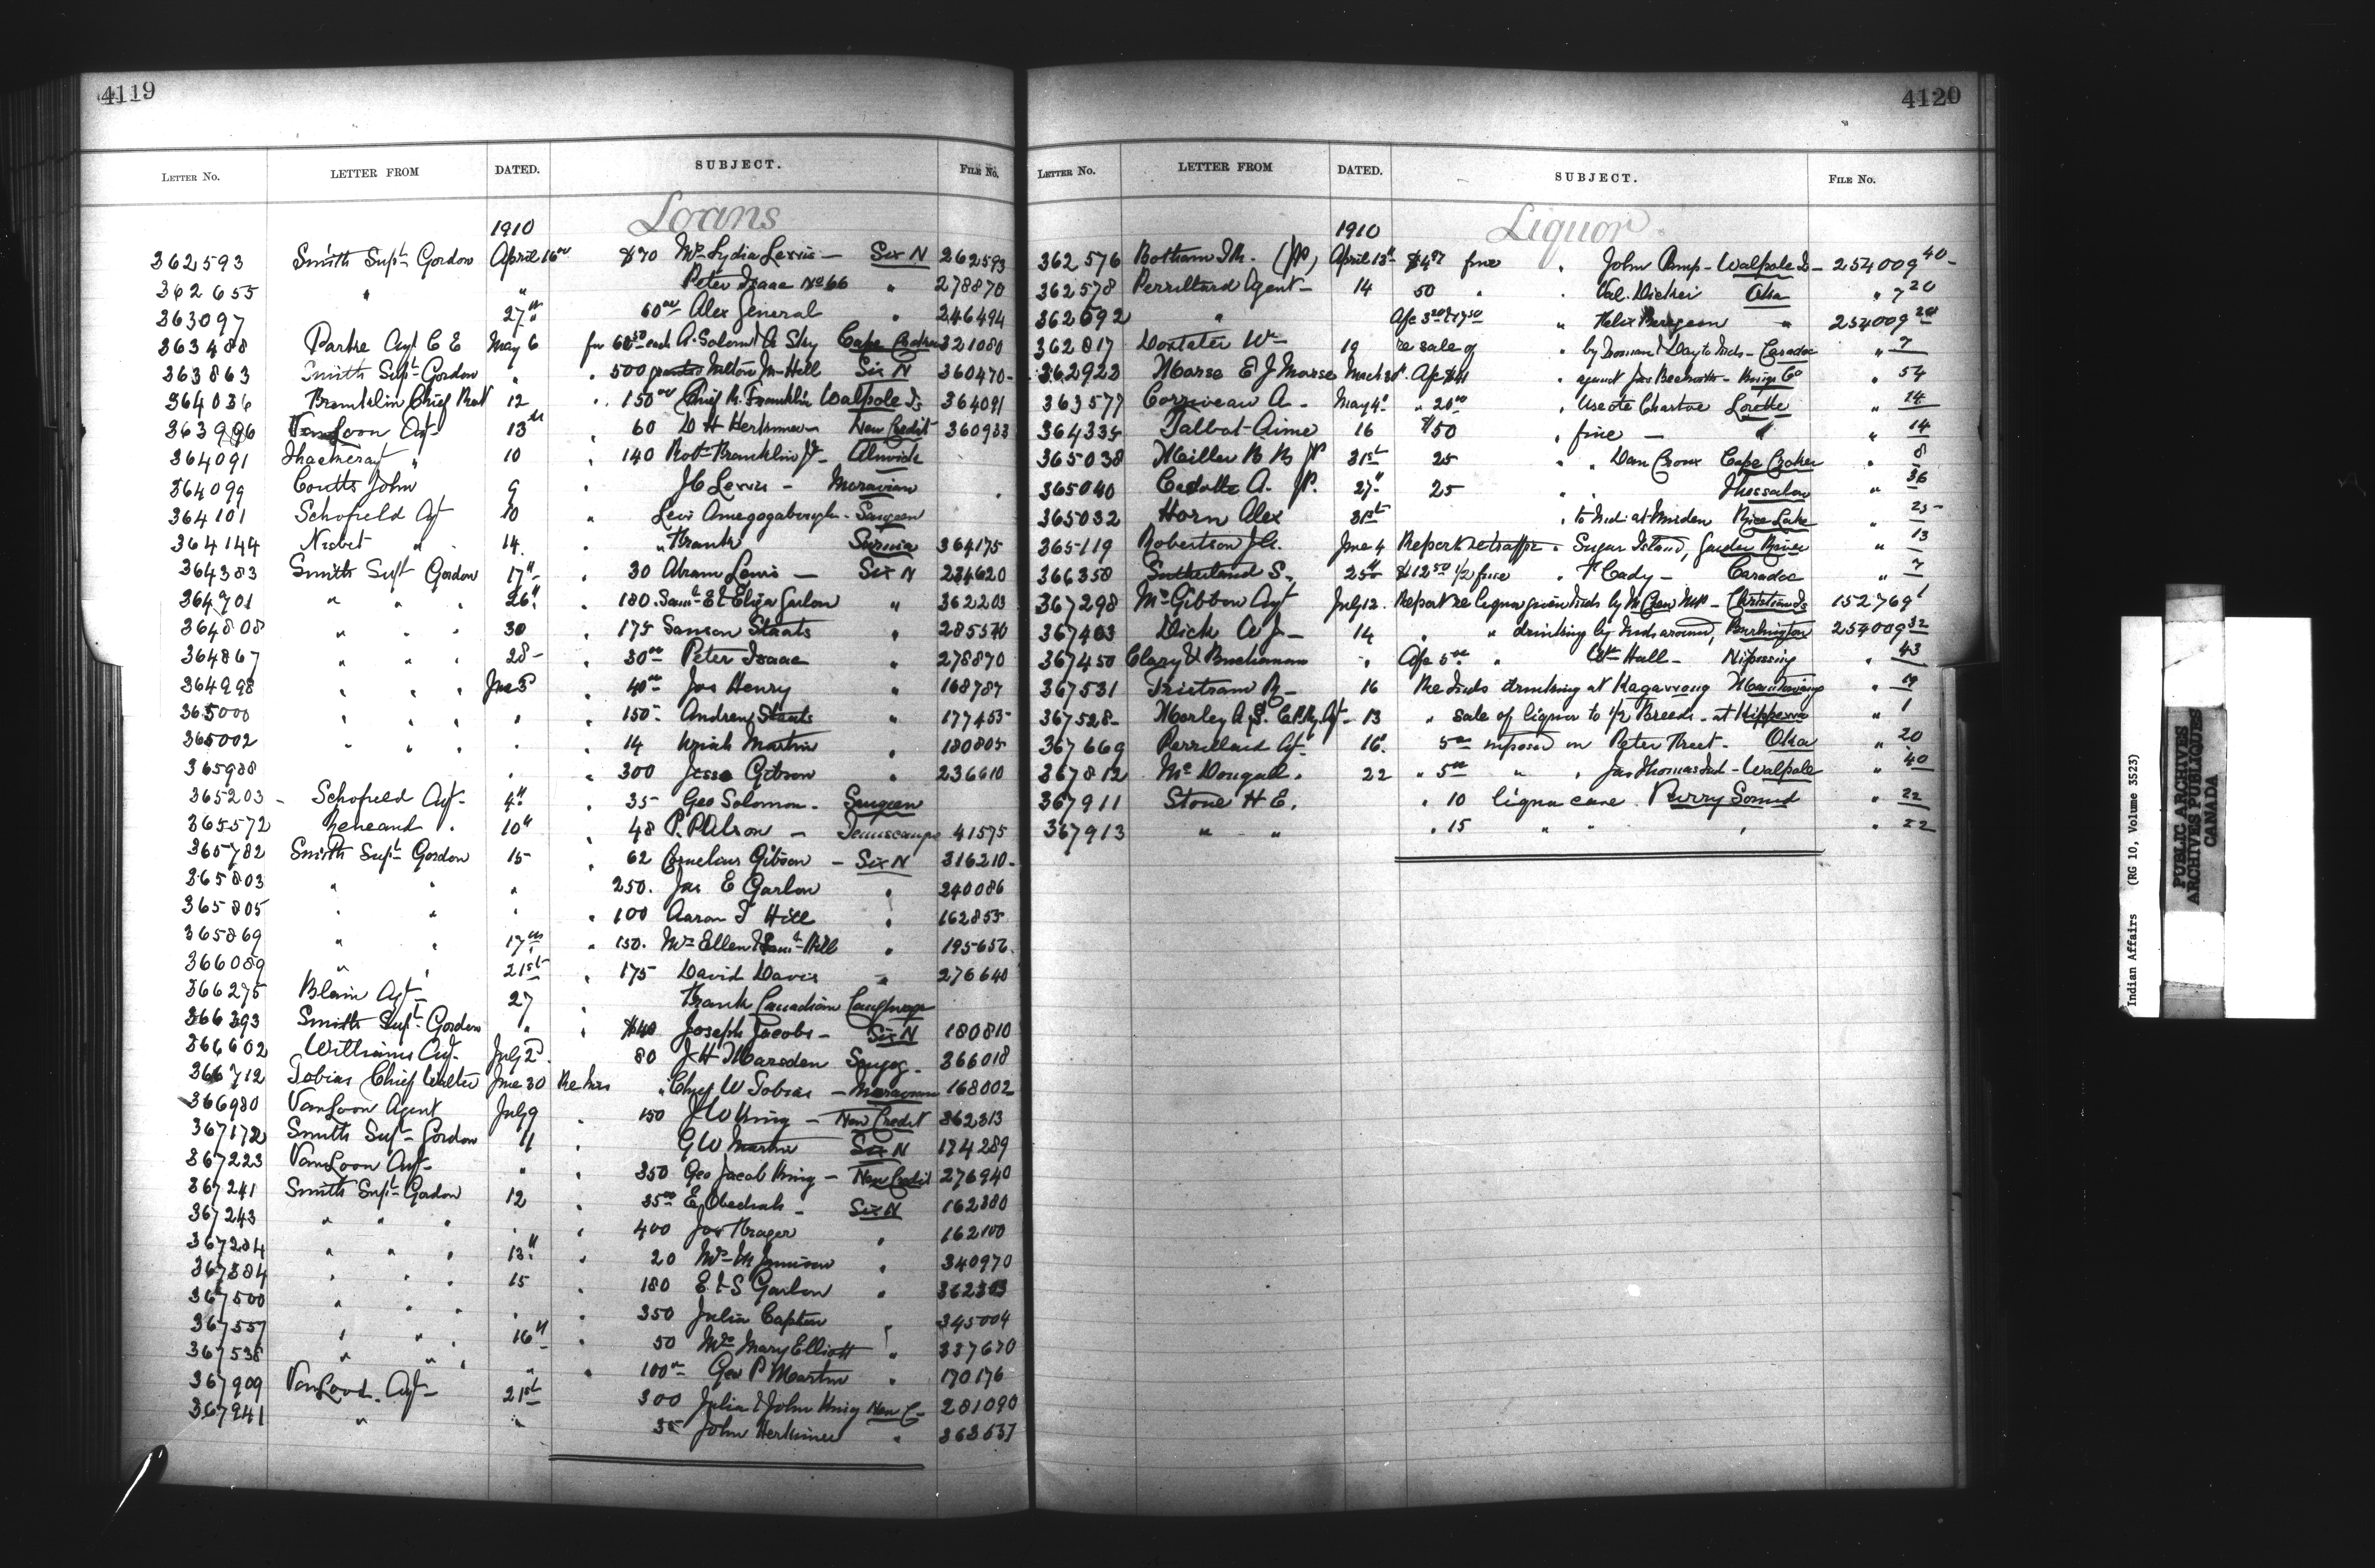 4119
LETTER No. LETTER FROM DATED. SUBJECT. FILE No.
Loans
1910
362593 Smith Supt Gordon April 16 $70 Mrs Lydia Lewis — Six N 262593
362655 " " Peter Isaac No 66 " 278870
363097 27 60 Alex General " 246494
363488 Parke Agt C E May 6 for 60 each A. Solomon & A Sky Cape Croker 321080
363863 Smith Supt Gordon " " 500 granted Milton M Hill Six N 360470
364036 Franklin Chief Robt 12 " 150 Chief R. Franklin Walpole Is 364091
363996 VanLoon Agt 13 " 60 D H Herkimer New Credit 360933
364091 Thackeray " 10 " 140 Robt Franklin Jr Alnwick
364099 Coutts John 9 " J C Lewis — Moravian
364101 Schofield Agt 10 " Levi Saugeen
364144 Nisbet " 14 " Frank Sarnia 364175
364383 Smith Supt Gordon 17 " 30 Abram Lewis — Six N 234620
364701 " " " 26 " 180 Saml E & Eliza Garlow " 362203
364808 " " " 30 " 175 Samson Staats " 285570
364867 " " " 28 " 30 Peter Isaac " 278870
364998 " " " June 3 " 40 Jos Henry " 168787
365000 " " " " " 150 Andrew Staats " 177455
365002 " " " " " 14 Uriah Martin " 180805
365988 " " 300 Jesse Gibson " 236610
365203 Schofield Agt 4 " 35 Geo Solomon Saugeen
365572 10 " 48 P. — 41575
365782 Smith Supt Gordon 15 " 62 Cornelius Gibson — Six N 316210
365803 " " " 250 Jas E Garlow " 240086
365805 " " " " 100 Aaron T Hill " 162855
365869 " " 17 " 150 Mrs Ellen & Saml Hill " 195656
366089 " " 21st " 175 David Davis " 276640
366275 Blain Agt 27 " Frank Canadian Caughnaga
366393 Smith Supt Gordon " " $40 Joseph Jacobs — Six N 180810
366602 Williams Agt July 2 80 J H Marsden Scugog 366018
366712 Tobias Chief Walter June 30 Re his " Chief W Tobias — Moravian 168002
366980 VanLoon Agent July 9 " 150 J W King — New Credit 362313
367172 Smith Supt Gordon 11 " G W Martin Six N 174289
367223 VanLoon Agt " " 350 Geo Jacob King — New Credit 276940
367241 Smith Supt Gordon 12 " 35 E. Obediah — Six N 162380
367243 " " " " " 400 Jos " 162100
367284 " " " 13 " 20 Mrs M Jamieson " 340970
367384 " " " 15 180 E. & S Garlow " 362303
367500 " " " " 350 Julia Captain 345004
367557 " " " 16 " 50 Mrs Mary Elliott " 337670
367538 " " " " " 100 Geo P Martin " 170176
367909 VanLoon Agt 21st 300 Julia & John King New C 281090
367941 " " 35 John Herkimer " 363537
4120
LETTER No. LETTER FROM DATED. SUBJECT. FILE No.
Liquor
1910
362576 Botham J M. (JP) April 13 fine " John Pump — Walpole I — 254009 40
362578 Perrillard Agent 14 50 " " Val. Dicker Oka " 20
362692 " Afc " Felix Bergeron " 254009 20
362817 Dostater Wm 19 re sale of " by & Day to Inds — Caradoc " 7
362923 Morse E J Morse March 31 Afc $41 " against Jas Beckwith — Kings Co " 54
363577 Corriveau A. May 4 " 20 " Lorette " 14
364334 Talbot Aime 16 $50 " fine — " " 14
365038 Miller B B JP 31st 25 " " Dan Croux Cape Croker " 8
365040 Cadotte A. JP. 27 25 " " Thessalon " 36
365032 Horn Alex 31st " to Inds at Marden Rice Lake " 25
365119 Robertson J G. June 4 Report re traffic " Sugar Island, Garden River " 13
366358 Sutherland S. 25 $12 50 1/2 fine " F Cady — Caradoc " 7
367298 McGibbon Agt July 12 Report re liquor given Inds by McCrew MP — Christian Is 152769 1
367403 Dick A J — 14 " " drinking by Inds around Burlington 254009 32
367450 Clary & Buchanan " Afc 5 " Hall — Nipissing " 43
367531 Tristram R — 16 Re Inds drinking at Kagawong Manitowaning " 19
367528 Morley A S. C.P.Ry Agt 13 " sale of liquor to 1/2 Breeds at Kippewa " 1
367669 Perrillard Agt 16 " 5 imposed on Peter Oka " 20
367812 McDougall 22 " 5 " " Jas Thomas Ind — Walpole " 40
367911 Stone H E. " 10 liquor case. Parry Sound " 22
367913 " " " 15 " " " " 22
Indian Affairs (RG 10, Volume 3523)
PUBLIC ARCHIVES
ARCHIVES PUBLIQUES
CANADA